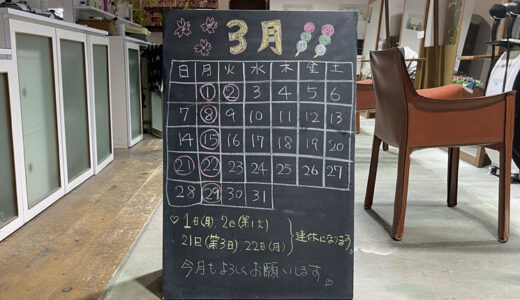 3月
日 月 火 水 木 金 土
1 2 3 4 5 6
7 8 9 10 11 12 13
14 15 16 17 18 19 20
21 22 23 24 25 26 27
28 29 30 31
♡ 1日(月)、2日(第1火)
21日(第3日)、22日(月) 連休になります。
今月もよろしくお願いします♡